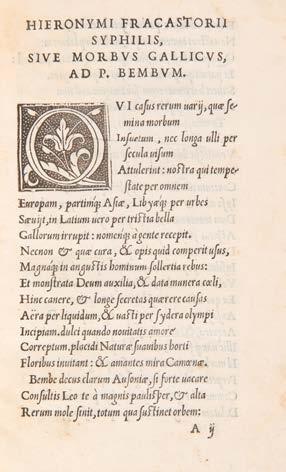 HIERONYMI FRACASTORII
SYPHILIS,
SIVE MORBVS GALLICVS,
AD P. BEMBVM.
QVI casus rerum uarij, quæ se
mina morbum
Insuetum, nec longa ulli per
secula uisum
Attulerint: nostra qui tempe-
state per omnem
Europam, partimq́; Asiæ, Libyæq́; per urbes
Sæuijt, in Latium uero per tristia bella
Gallorum irrupit: nomenq́; à gente recepit.
Necnon & quæ cura, & opis quid comperit usus,
Magnaq́; in angustis hominum sollertia rebus:
Et monstrata Deum auxilia, & data munera cœli,
Hinc canere, & longe secretas quærere causas
Aëra per liquidum, & uasti per sydera olympi
Incipiam. dulci quando nouitatis amore
Correptum. placidi Naturæ suauibus horti
Floribus inuitant: & amantes mira Camœnæ.
Bembe decus clarum Ausoniæ, si forte uacare
Consultis Leo te à magnis paulisper, & alta
Rerum mole sinit, totum qua sustinet orbem:
A ij